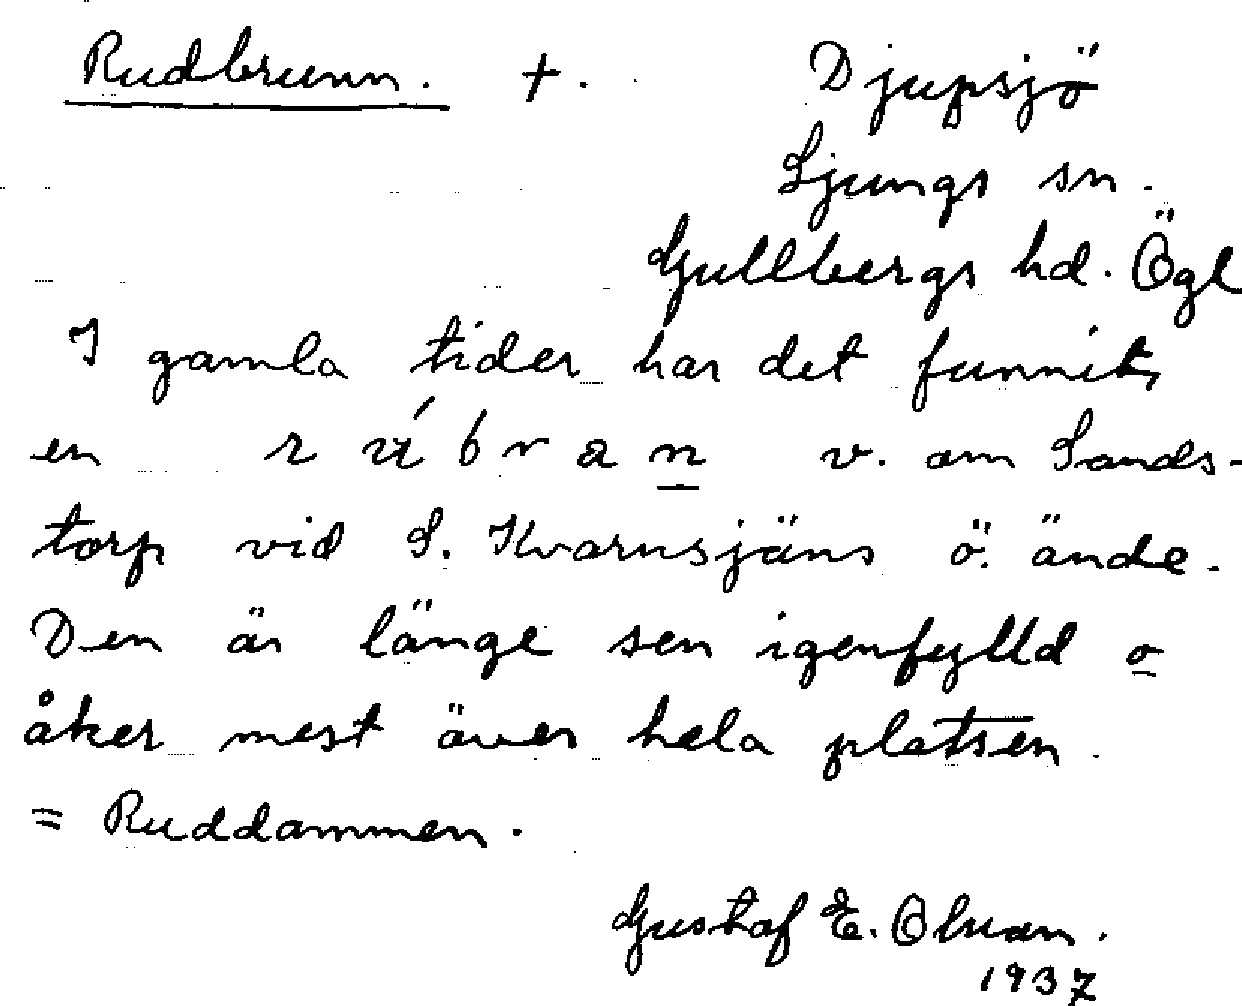 Rudbrunn. +. Djupsjö
Ljungs sn.
Gullbergs hd. Ögl
I gamla tider har det funnits
en rúbran v. om Sands-
torp vid S. Kvarnsjäns ö. ände.
Den är länge sen igenfylld o
åker mest över hela platsen.
= Ruddammen.
Gustaf E. Olsson.
1937